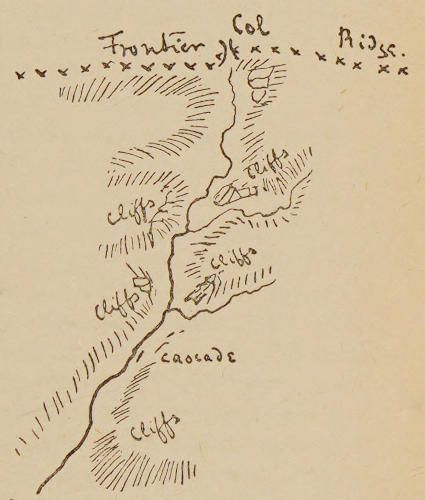 Frontier Col Ridge.
cliffs
cliffs
cliffs
cliffs
cascade
cliffs